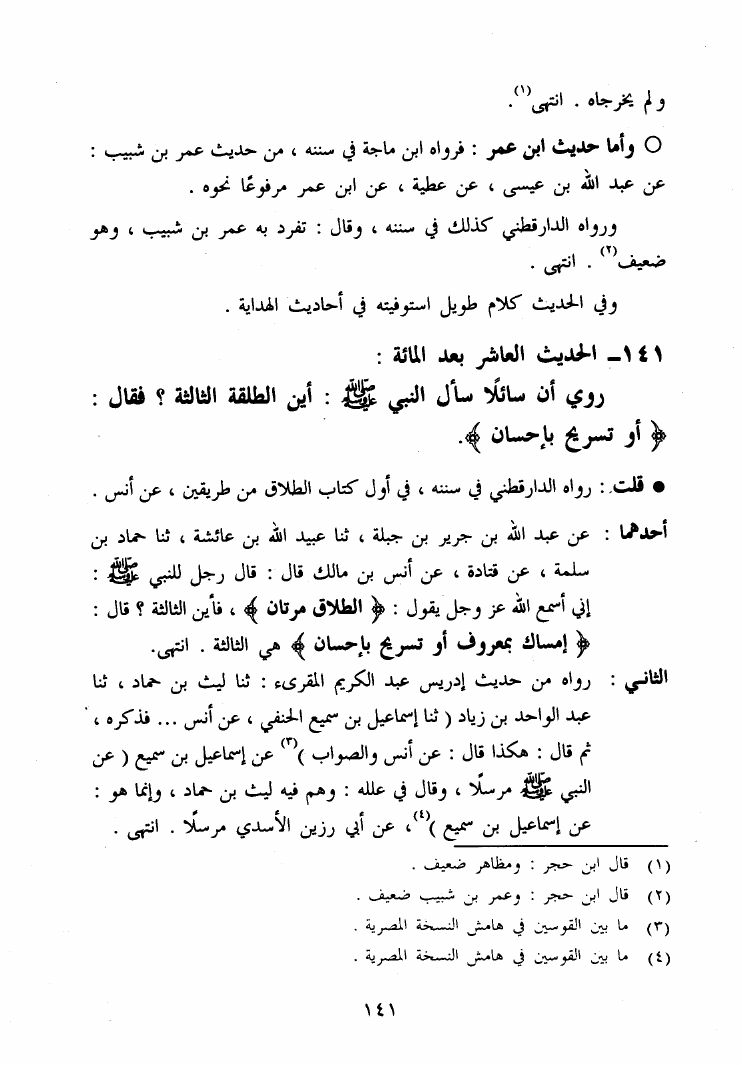 ولم يخرجاه . انتهى(١).
○ وأما حديث ابن عمر : فرواه ابن ماجة في سننه ، من حديث عمر بن شبيب :
عن عبد الله بن عيسى ، عن عطية ، عن ابن عمر مرفوعًا نحوه .
ورواه الدارقطني كذلك في سننه ، وقال : تفرد به عمر بن شبيب ، وهو
ضعيف(٢) . انتهى .
وفي الحديث كلام طويل استوفيته في أحاديث الهداية .
١٤١ــ الحديث العاشر بعد المائة :
روي أن سائلًا سأل النبي ﷺ : أين الطلقة الثالثة ؟ فقال :
﴿ أو تسريح بإحسان ﴾.
● قلت : رواه الدارقطني في سننه ، في أول كتاب الطلاق من طريقين ، عن أنس .
أحدهما : عن عبد الله بن جرير بن جبلة ، ثنا عبيد الله بن عائشة ، ثنا حماد بن
سلمة ، عن قتادة ، عن أنس بن مالك قال : قال رجل للنبي ﷺ :
إني أسمع الله عز وجل يقول : ﴿ الطلاق مرتان ﴾ ، فأين الثالثة ؟ قال :
﴿ إمساك بمعروف أو تسريح بإحسان ﴾ هي الثالثة . انتهى.
الثاني : رواه من حديث إدريس عبد الكريم المقرىء : ثنا ليث بن حماد ، ثنا
عبد الواحد بن زياد ( ثنا إسماعيل بن سميع الحنفي ، عن أنس ... فذكره ،
ثم قال : هكذا قال : عن أنس والصواب )(٣) عن إسماعيل بن سميع ( عن
النبي ﷺ مرسلًا ، وقال في علله : وهم فيه ليث بن حماد ، وإنما هو :
عن إسماعيل بن سميع )(٤)، عن أبي رزين الأسدي مرسلًا . انتهى .
(١) قال ابن حجر : ومظاهر ضعيف .
(٢) قال ابن حجر : وعمر بن شبيب ضعيف .
(٣) ما بين القوسين في هامش النسخة المصرية .
(٤) ما بين القوسين في هامش النسخة المصرية .
١٤١